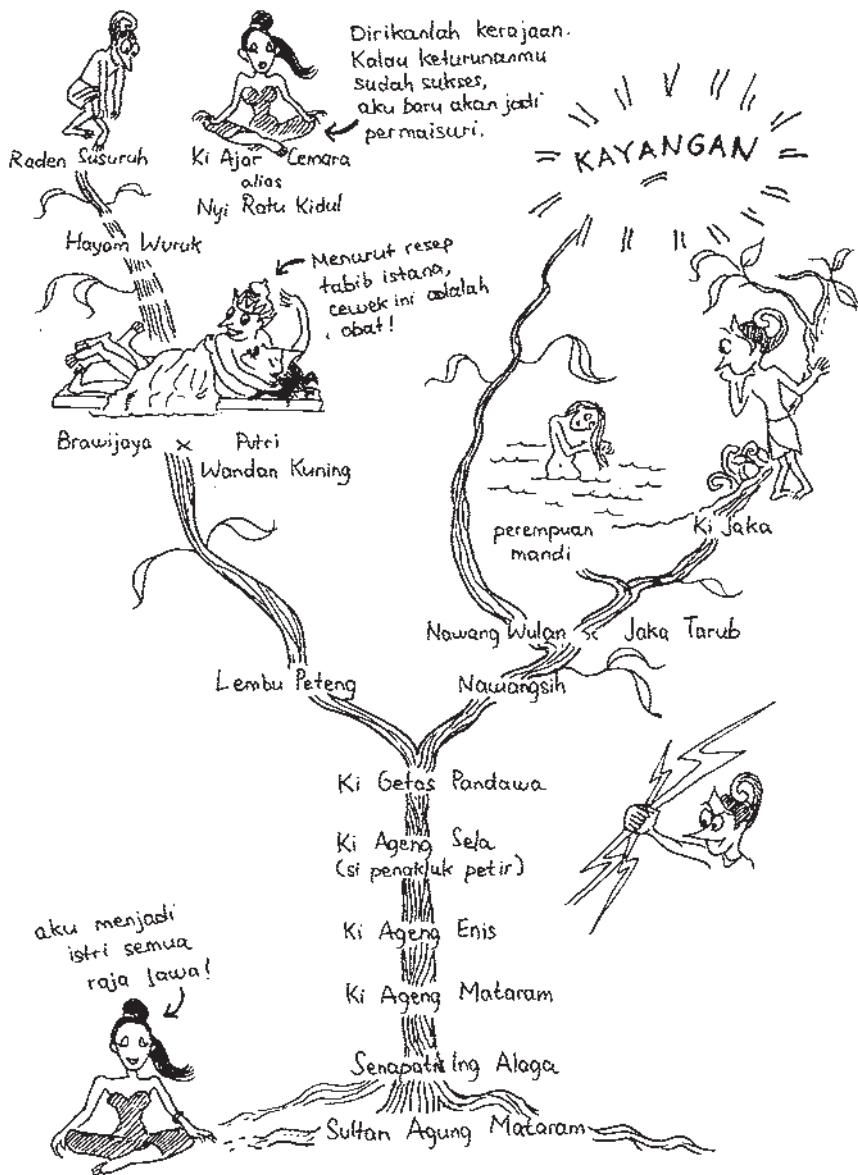 Dirikanlah kerajaan.
Kalau keturunanmu
sudah sukses,
aku baru akan jadi
permaisuri.
Raden Susuruh
Ki Ajar Cemara
alias
Nyi Ratu Kidul
KAYANGAN
Hayam Wuruk
Menurut resep
tabib istana,
cewek ini adalah
obat!
Brawijaya x Putri
Wandan Kuning
perempuan
mandi
Ki Jaka
Nawang Wulan x Jaka Tarub
Lembu Peteng
Nawangsih
Ki Getas Pandawa
Ki Ageng Sela
(si penakluk petir)
Ki Ageng Enis
Ki Ageng Mataram
aku menjadi
istri semua
raja Jawa!
Senapati Ing Alaga
Sultan Agung Mataram